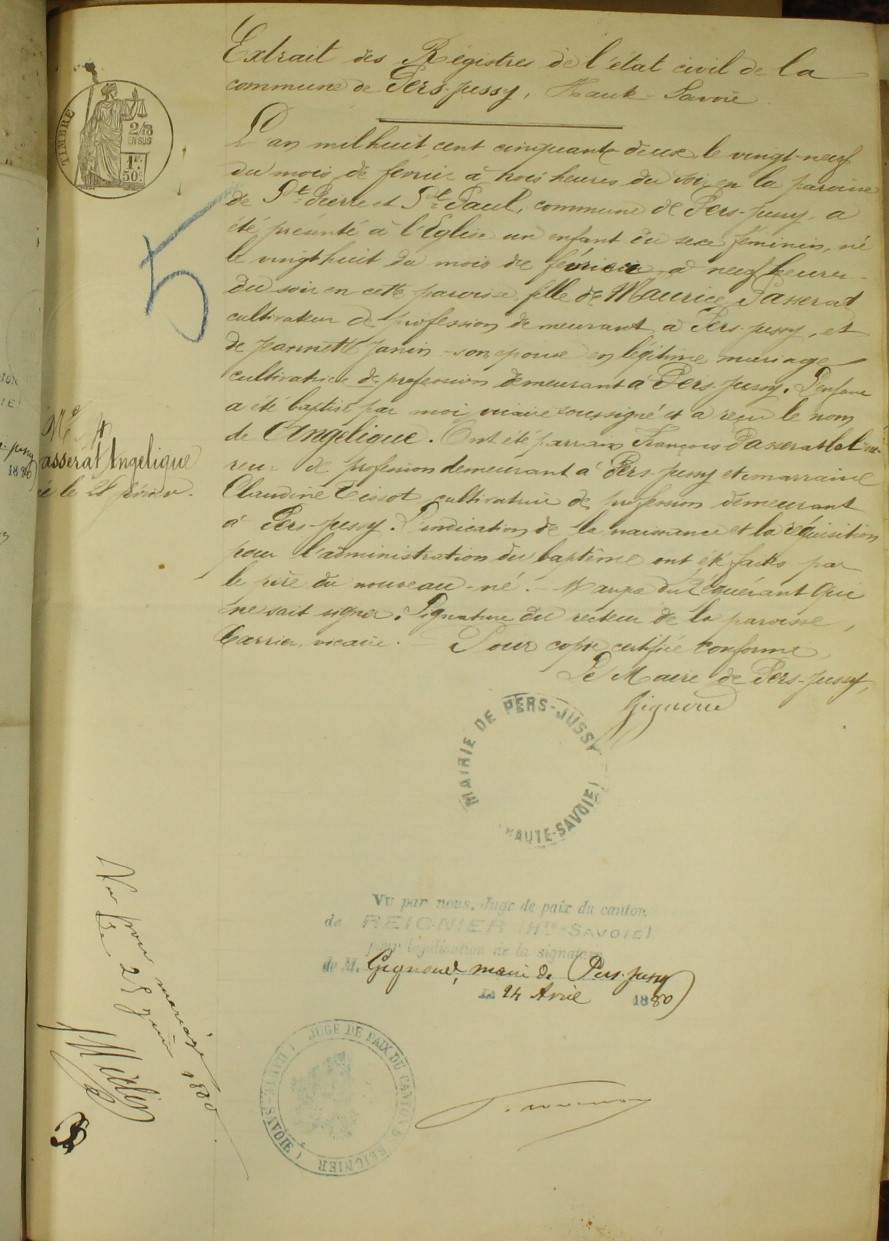 Extrait des Régistres de l'état civil de la
commune de Pers-Jussy, Haute-Savoie
L'an mil huit cent cinquante deux le vingt-neuf
du mois de février à trois heures du soir en la paroisse
de St Pierre et St Paul, commune de Pers-Jussy, a
été présenté à l'Eglise un enfant du sexe féminin, né
le vingt huit du mois de février, à neuf heures
du soir en cette paroisse fille de Maurice Passerat
cultivateur de profession demeurant à Pers-Jussy, et
de Jannette Janin son épouse en légitime mariage
cultivatrice de profession demeurant à Pers-Jussy. L'enfant
a été baptisé par moi vicaire soussigné et a reçu le nom
de Angélique. Ont été parrain François Passerat
de profession demeurant à Pers-Jussy et marraine
Claudine Tissot cultivatrice de profession demeurant
à Pers-Jussy. L'indication de la naissance et la réquisition
pour l'administration du baptême ont été faites par
le père du nouveau-né. - Marque du Réquérant qui
ne sait signer. Signature du recteur de la paroisse,
vicaire. Pour copie certifiée conforme
Le Maire de Pers-Jussy,
Gignoud
TIMBRE
2/10
EN SUS
1F
50C
5
N° 4
Passerat Angélique
né le 28 février.
MAIRIE DE PERS-JUSSY
(HAUTE-SAVOIE)
Vu par nous, Juge de paix du canton
de REIGNIER (Hte SAVOIE)
pour légalisation de la signature
de M. Gignoud, maire de Pers-Jussy
le 24 Avril 1880
JUGE DE PAIX DU CANTON DE REIGNIER (HAUTE-SAVOIE)
Vu pour mariage
le 25 juin 1880